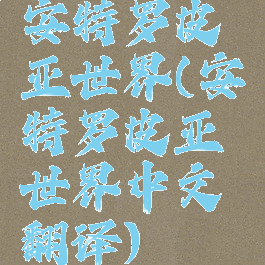 安特罗皮
亚世界(安
特罗皮亚
世界中文
翻译)